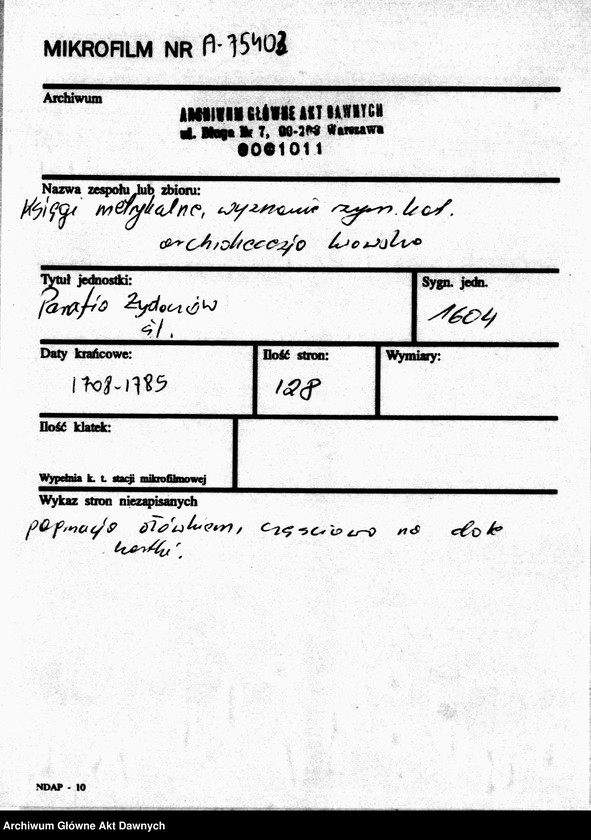 MIKROFILM NR A-75403
Archiwum
ARCHIWUM GŁÓWNE AKT DAWNYCH
ul. Długa Nr 7, 00-263 Warszawa
0001011
Nazwa zespołu lub zbioru:
Księgi metrykalne, wyznanie rzym. kat.
archidiecezja lwowska
Tytuł jednostki:
Parafia Żydaczów
śl.
Sygn. jedn.
1604
Daty krańcowe:
1708-1785
Ilość stron:
128
Wymiary:
Ilość klatek:
Wypełnia k. t. stacji mikrofilmowej
Wykaz stron niezapisanych
paginacja ołówkiem, częściowo na dole
kartki.
NDAP - 10
Archiwum Główne Akt Dawnych